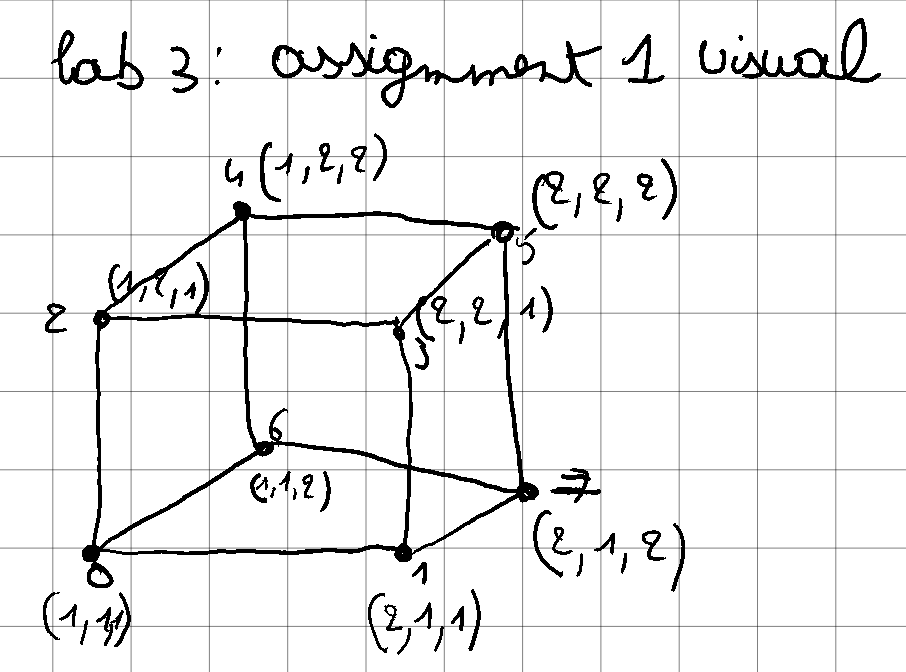 lab 3: assignment 1 visual
4 (1,2,2)
(2,2,2)
5
(1,2,1)
2
(2,2,1)
3
6
(1,1,2)
7
(2,1,2)
0
1
(1,1,1)
(2,1,1)